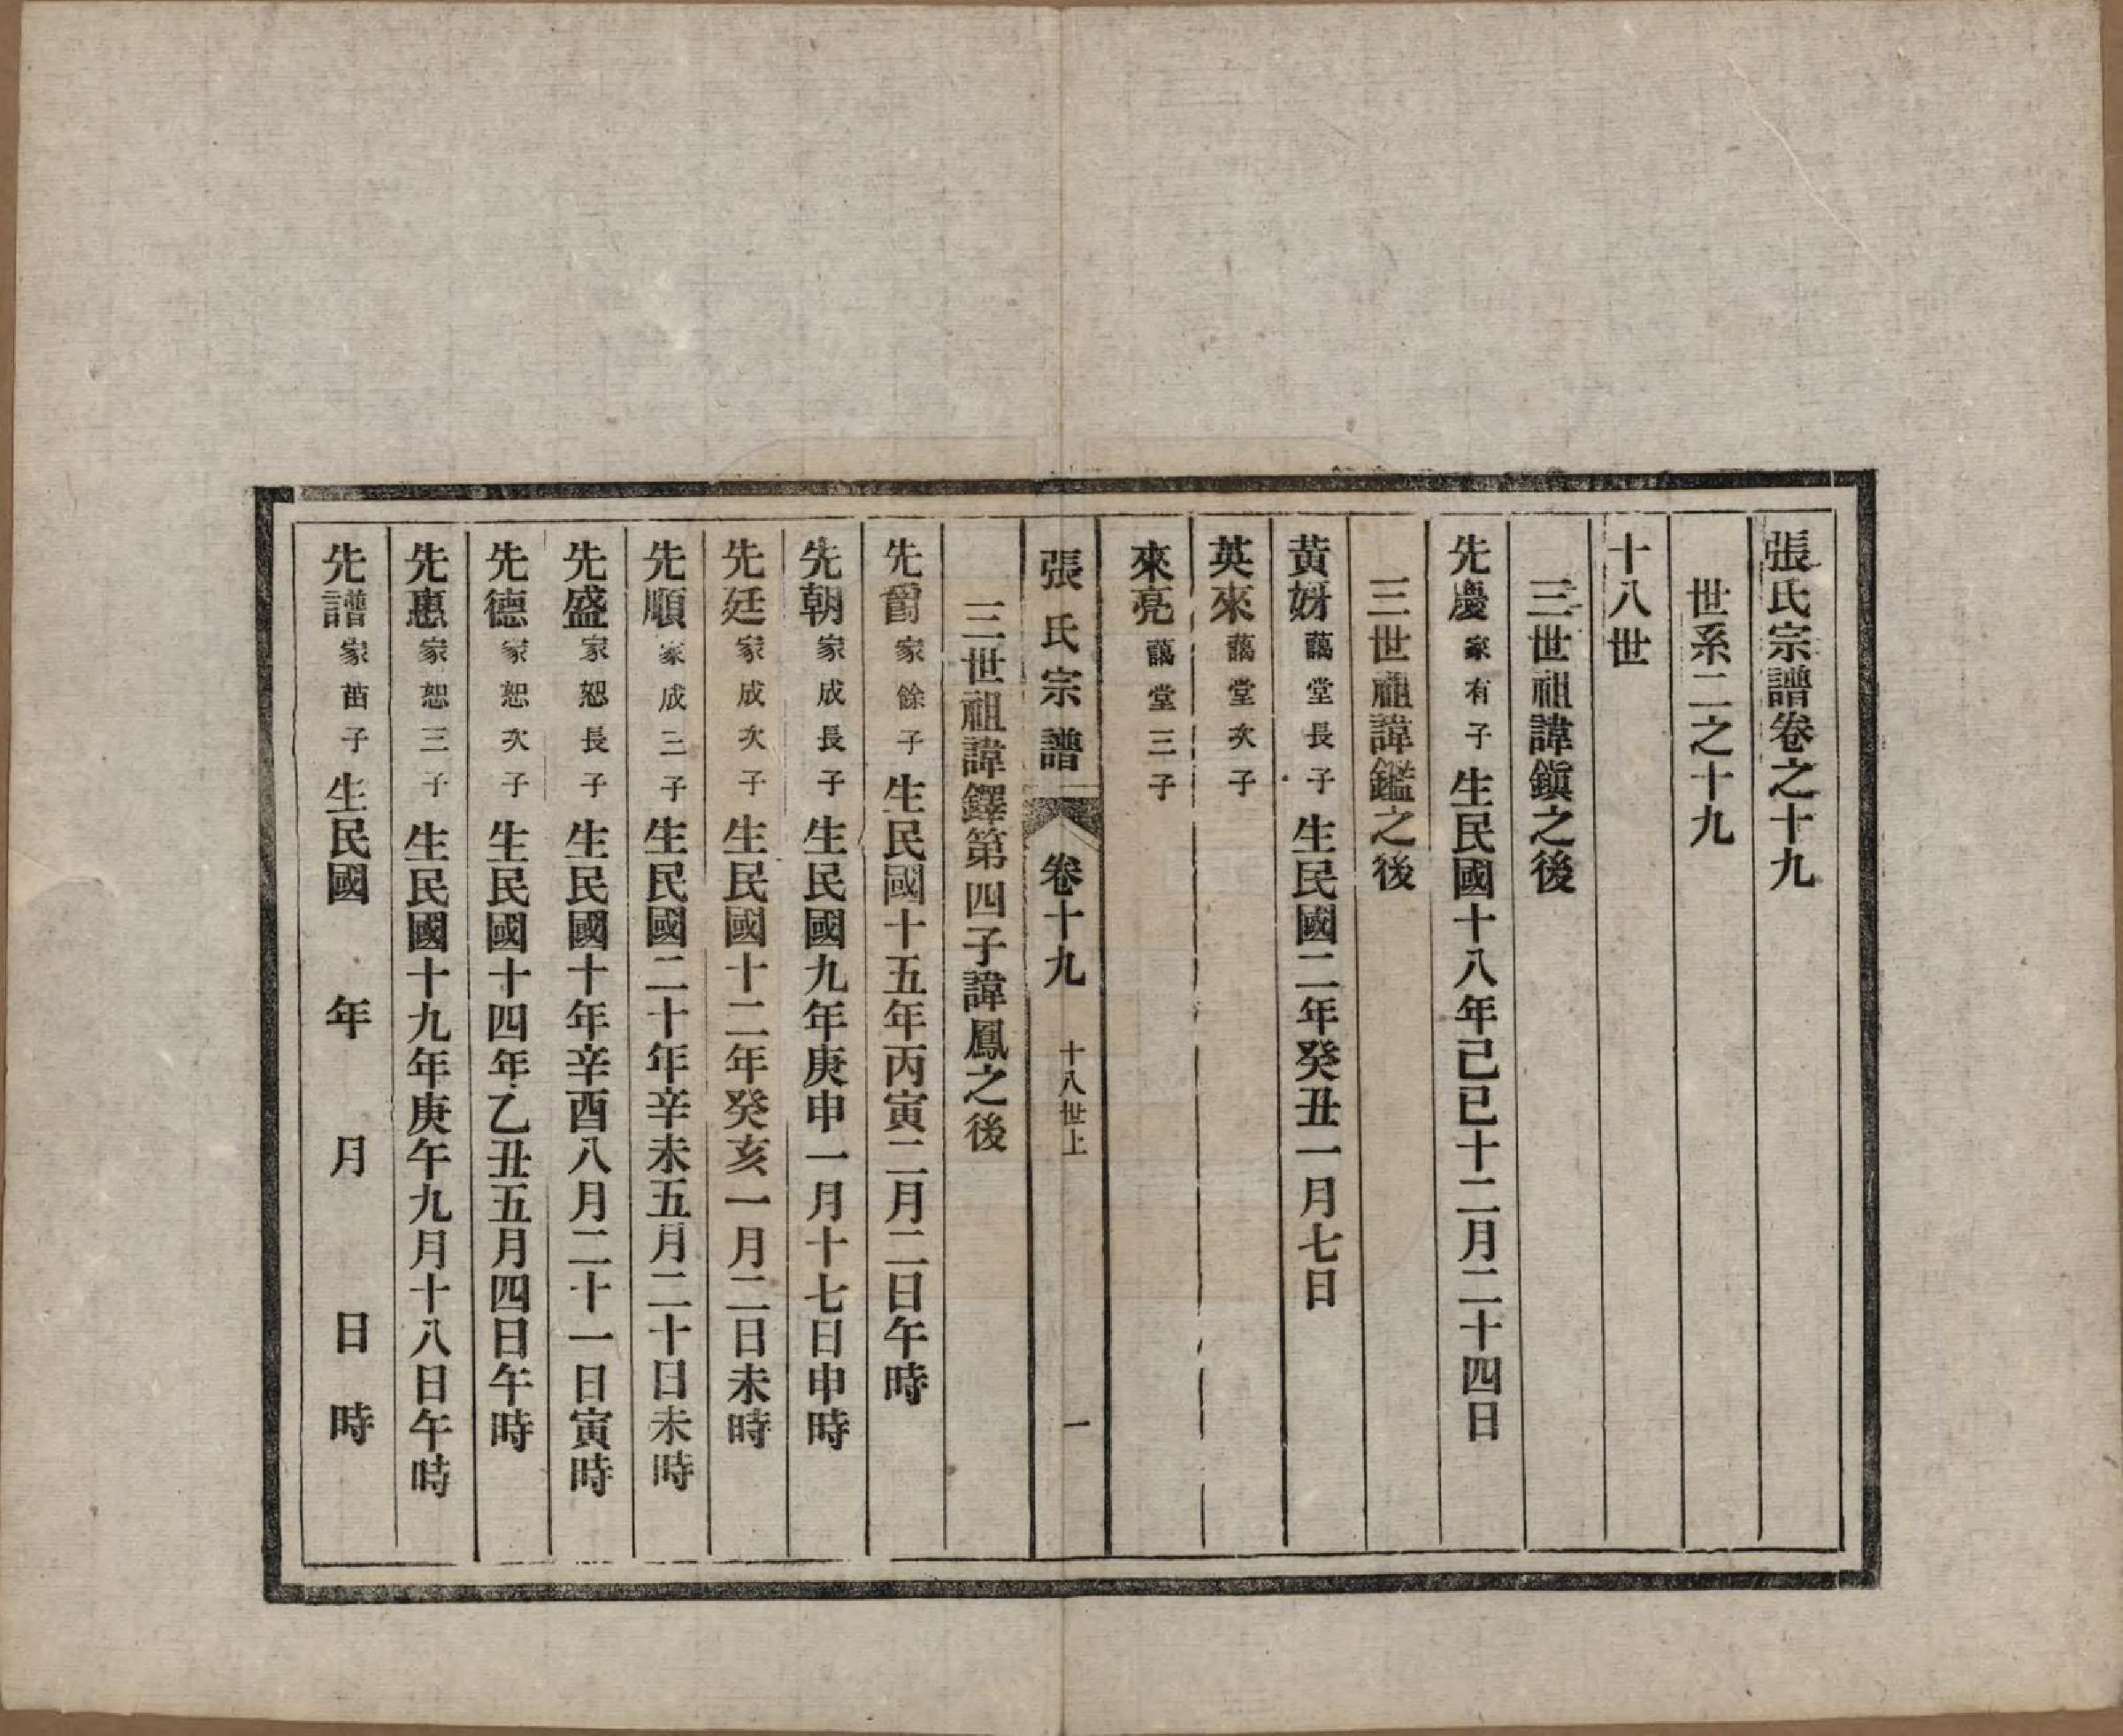 張氏宗譜卷之十九
世系二之十九
十八世
三世祖諱鎭之後
先慶家有子生民國十八年己巳十二月二十四日
三世祖諱鑑之後
黃妍藹堂長子生民國二年癸丑一月七日
英來藹堂次子
來亮藹堂三子
張氏宗譜 卷十九 十八世上 一
三世祖諱鐸第四子諱鳳之後
先爵家餘子生民國十五年丙寅二月二日午時
先朝家成長子生民國九年庚申一月十七日申時
先廷家成次子生民國十二年癸亥一月二日未時
先順家成三子生民國二十年辛未五月二十日未時
先盛家恕長子生民國十年辛酉八月二十一日寅時
先德家恕次子生民國十四年乙丑五月四日午時
先惠家恕三子生民國十九年庚午九月十八日午時
先譜家苗子生民國 年 月 日 時